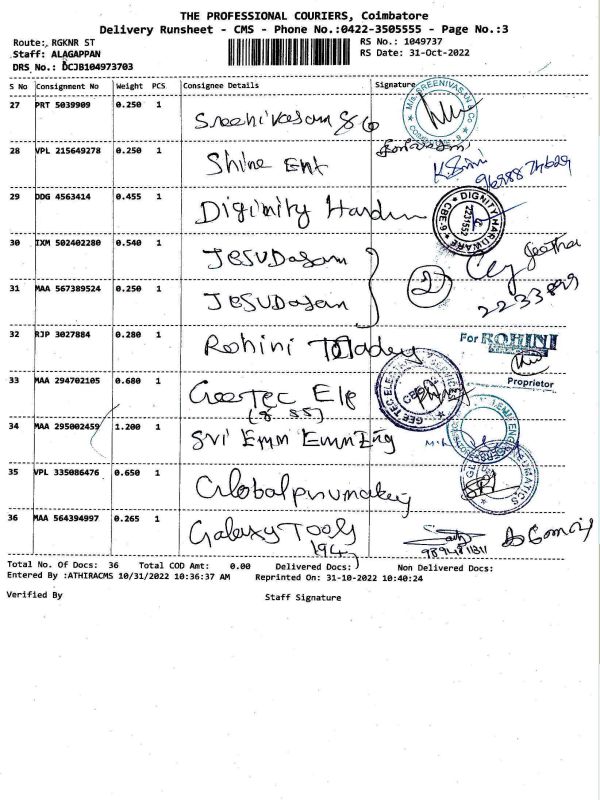 THE PROFESSIONAL COURIERS, Coimbatore
Delivery Runsheet - CMS - Phone No.:0422-3505555 - Page No.:3
Route:, RGKNR ST
RS No.: 1049737
Staff: ALAGAPPAN
RS Date: 31-Oct-2022
DRS No.: DCJB104973703
S No Consignment No Weight PCS Consignee Details Signature
27 PRT 5039909 0.250 1
28 VPL 215649278 0.250 1 Shine Ent
K
29 DDG 4563414 0.455 1
DIGNITY HARDWARE CBE-9 2231552
30 IXM 502402280 0.540 1 Jesudasan
Geetha
31 MAA 567389524 0.250 1 Jesudasan
2
2233899
32 RJP 3027884 0.280 1 Rohini
For ROHINI
Proprietor
33 MAA 294702105 0.680 1 GeeTec Ele
34 MAA 295002459 1.200 1 Sri Emm Emm Eng
35 VPL 335086476 0.650 1
36 MAA 564394997 0.265 1 Galaxy Tools
1947
Total No. Of Docs: 36 Total COD Amt: 0.00 Delivered Docs: Non Delivered Docs:
Entered By :ATHIRACMS 10/31/2022 10:36:37 AM Reprinted On: 31-10-2022 10:40:24
Verified By Staff Signature